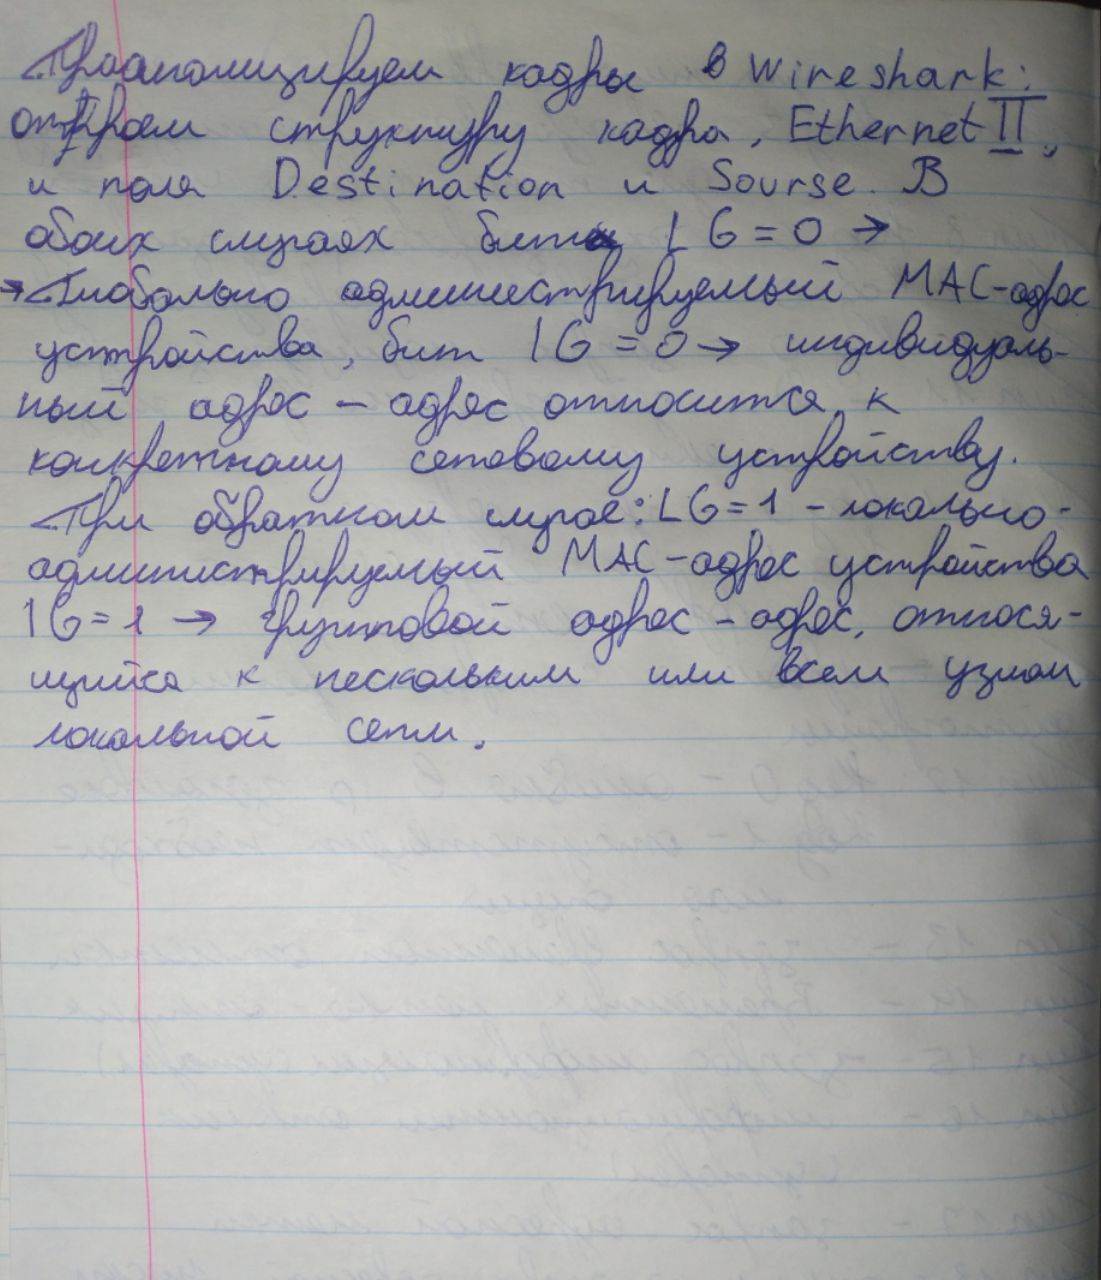 Проанализируем кадры в Wireshark:
откроем структуру кадра, Ethernet II,
и поля Destination и Sourse. В
обоих случаях бит LG = 0 →
→ Глобально администрируемый MAC-адрес
устройства, бит IG = 0 → индивидуаль-
ный адрес – адрес относится к
конкретному сетевому устройству.
При обратном случае: LG = 1 – локально-
администрируемый MAC-адрес устройства
IG = 1 → групповой адрес – адрес, относя-
щийся к нескольким или всем узлам
локальной сети.